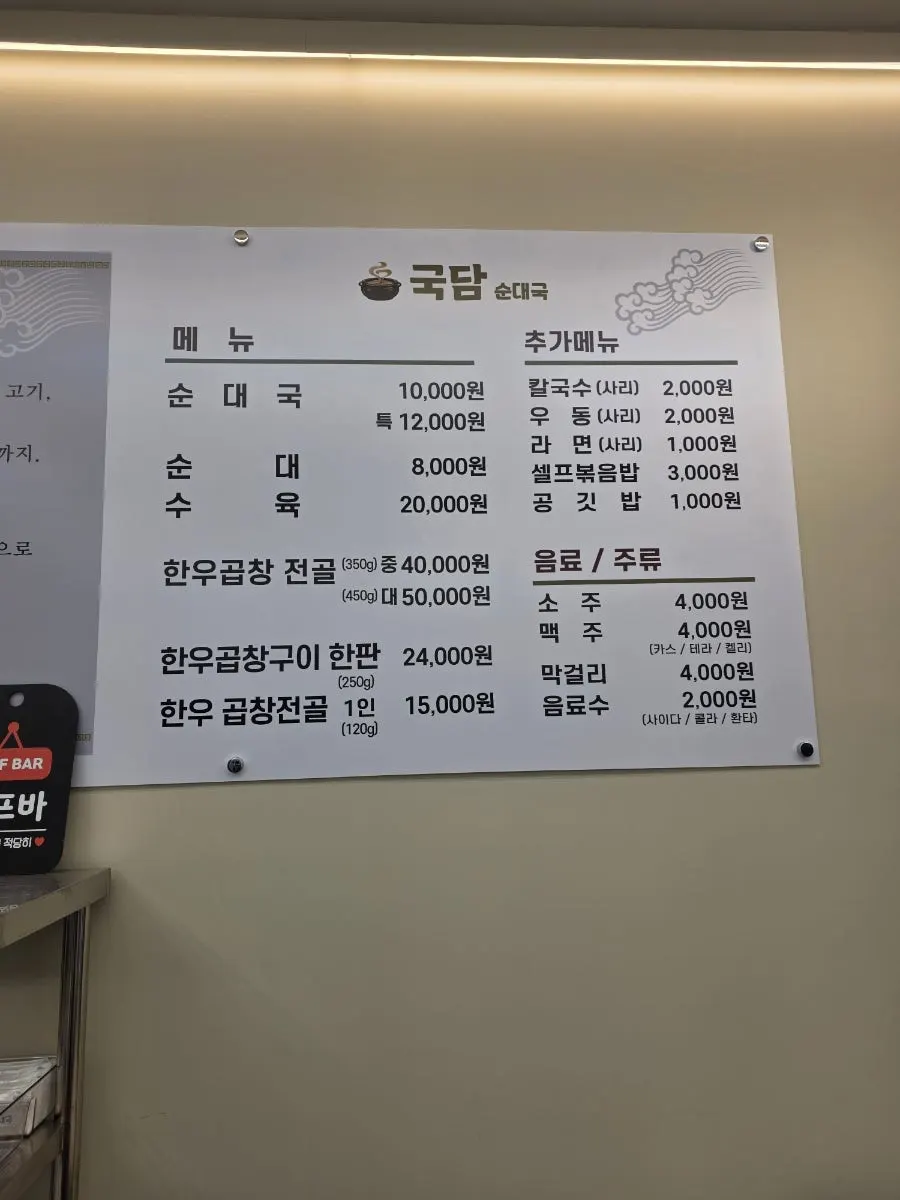 고기.
까지.
으로
국담 순대국
메 뉴
순 대 국 10,000원
특 12,000원
순 대 8,000원
수 육 20,000원
한우곱창 전골 (350g) 중 40,000원
(450g) 대 50,000원
한우곱창구이 한판 24,000원
(250g)
한우 곱창전골 1인 15,000원
(120g)
추가메뉴
칼국수 (사리) 2,000원
우 동 (사리) 2,000원
라 면 (사리) 1,000원
셀프볶음밥 3,000원
공 깃 밥 1,000원
음료 / 주류
소 주 4,000원
맥 주 4,000원
(카스 / 테라 / 켈리)
막걸리 4,000원
음료수 2,000원
(사이다 / 콜라 / 환타)
F BAR
프바
적당히